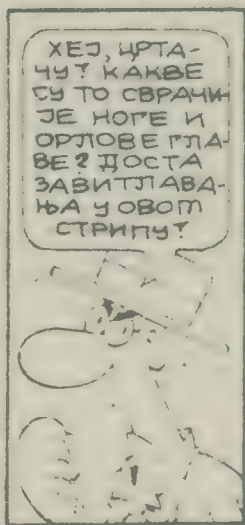 ХЕЈ, ЦРТА-
ЧУ! КАКВЕ
СУ ТО СВРАЧИ-
ЈЕ НОГЕ И
ОРЛОВЕ ГЛА-
ВЕ? ДОСТА
ЗАВИТЛАВА-
ЊА У ОВОМ
СТРИПУ!